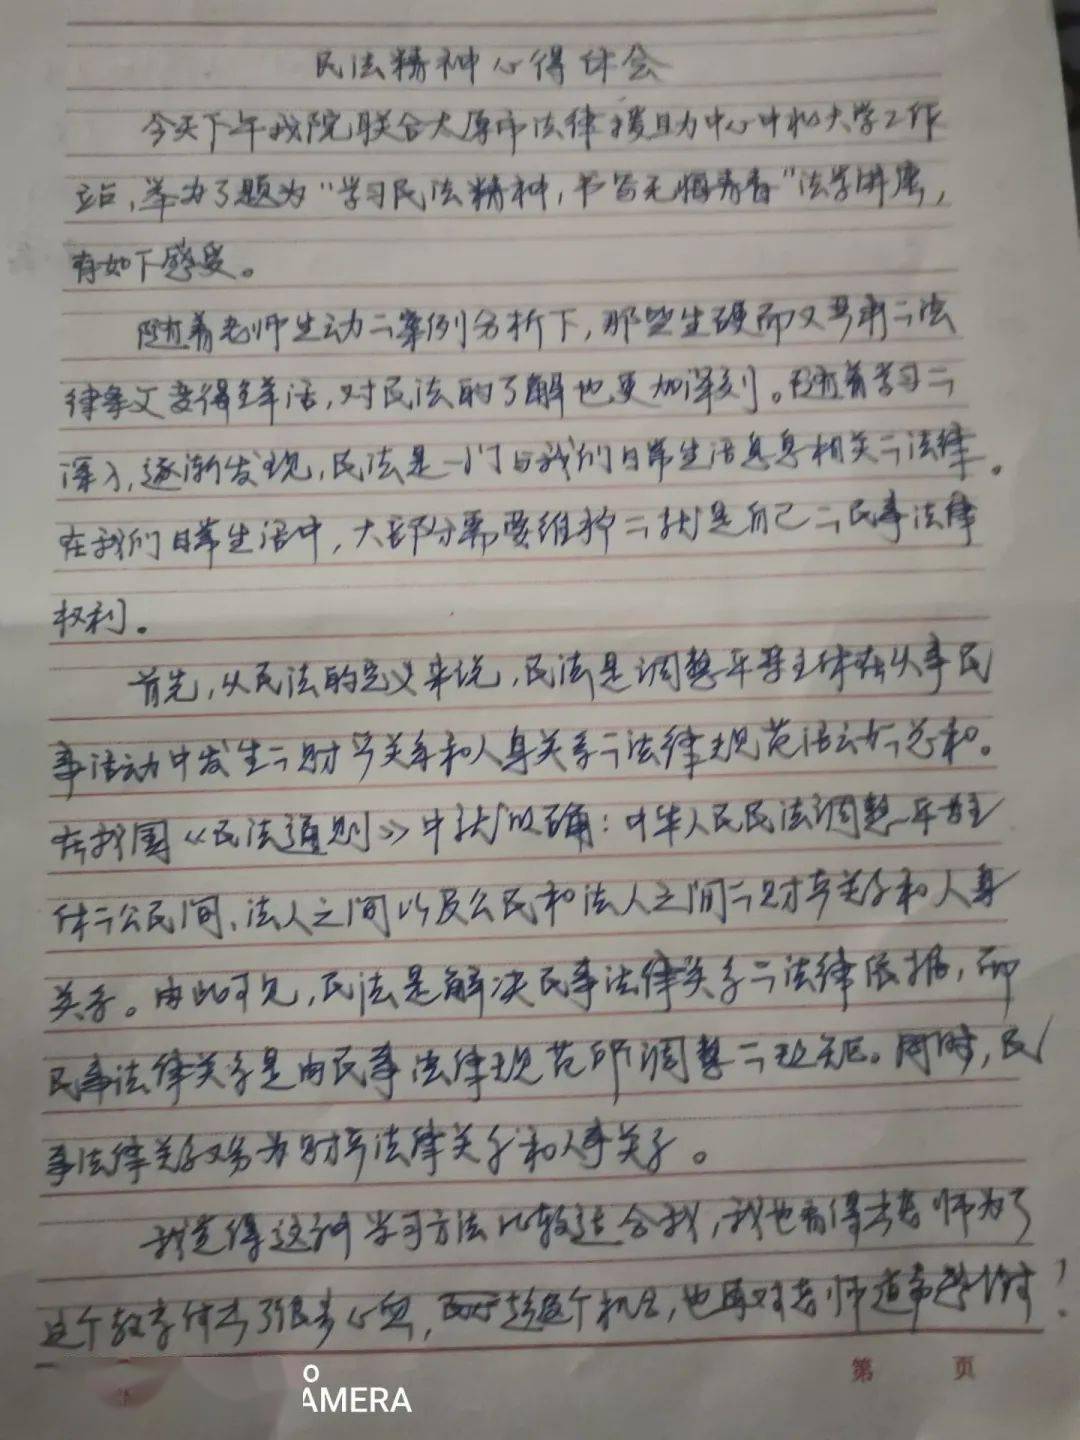 民法精神心得体会
今天下午我院联合太原市法律援助中心中北大学工作
站,举办了题为“学习民法精神,书写无悔青春”法学讲座,
有如下感受。
随着老师生动二案例分析下,那些生硬而又努力二法
律条文变得鲜活,对民法的了解也更加深刻。随着学习二
深入,逐渐发现,民法是一门与我们日常生活息息相关二法律。
在我们日常生活中,大部分需要维护二就是自己二民事法律
权利。
首先,从民法的定义来说,民法是调整平等主体在从事民
事活动中发生二财产关系和人身关系二法律规范活动二总和。
在我国《民法通则》中就明确:中华人民民法调整平等主
体二公民间、法人之间以及公民和法人之间二财产关系和人身
关系。由此可见,民法是解决民事法律关系二法律依据,而
民事法律关系是由民事法律规范所调整二社会关。同时,民
事法律关系又分为财产法律关系和人事关系。
我觉得这种学习方法比较适合我,我也看得出老师为了
这个教育付出了很多心血,趁这个机会,也再对老师道声感谢!
第 页
AMERA